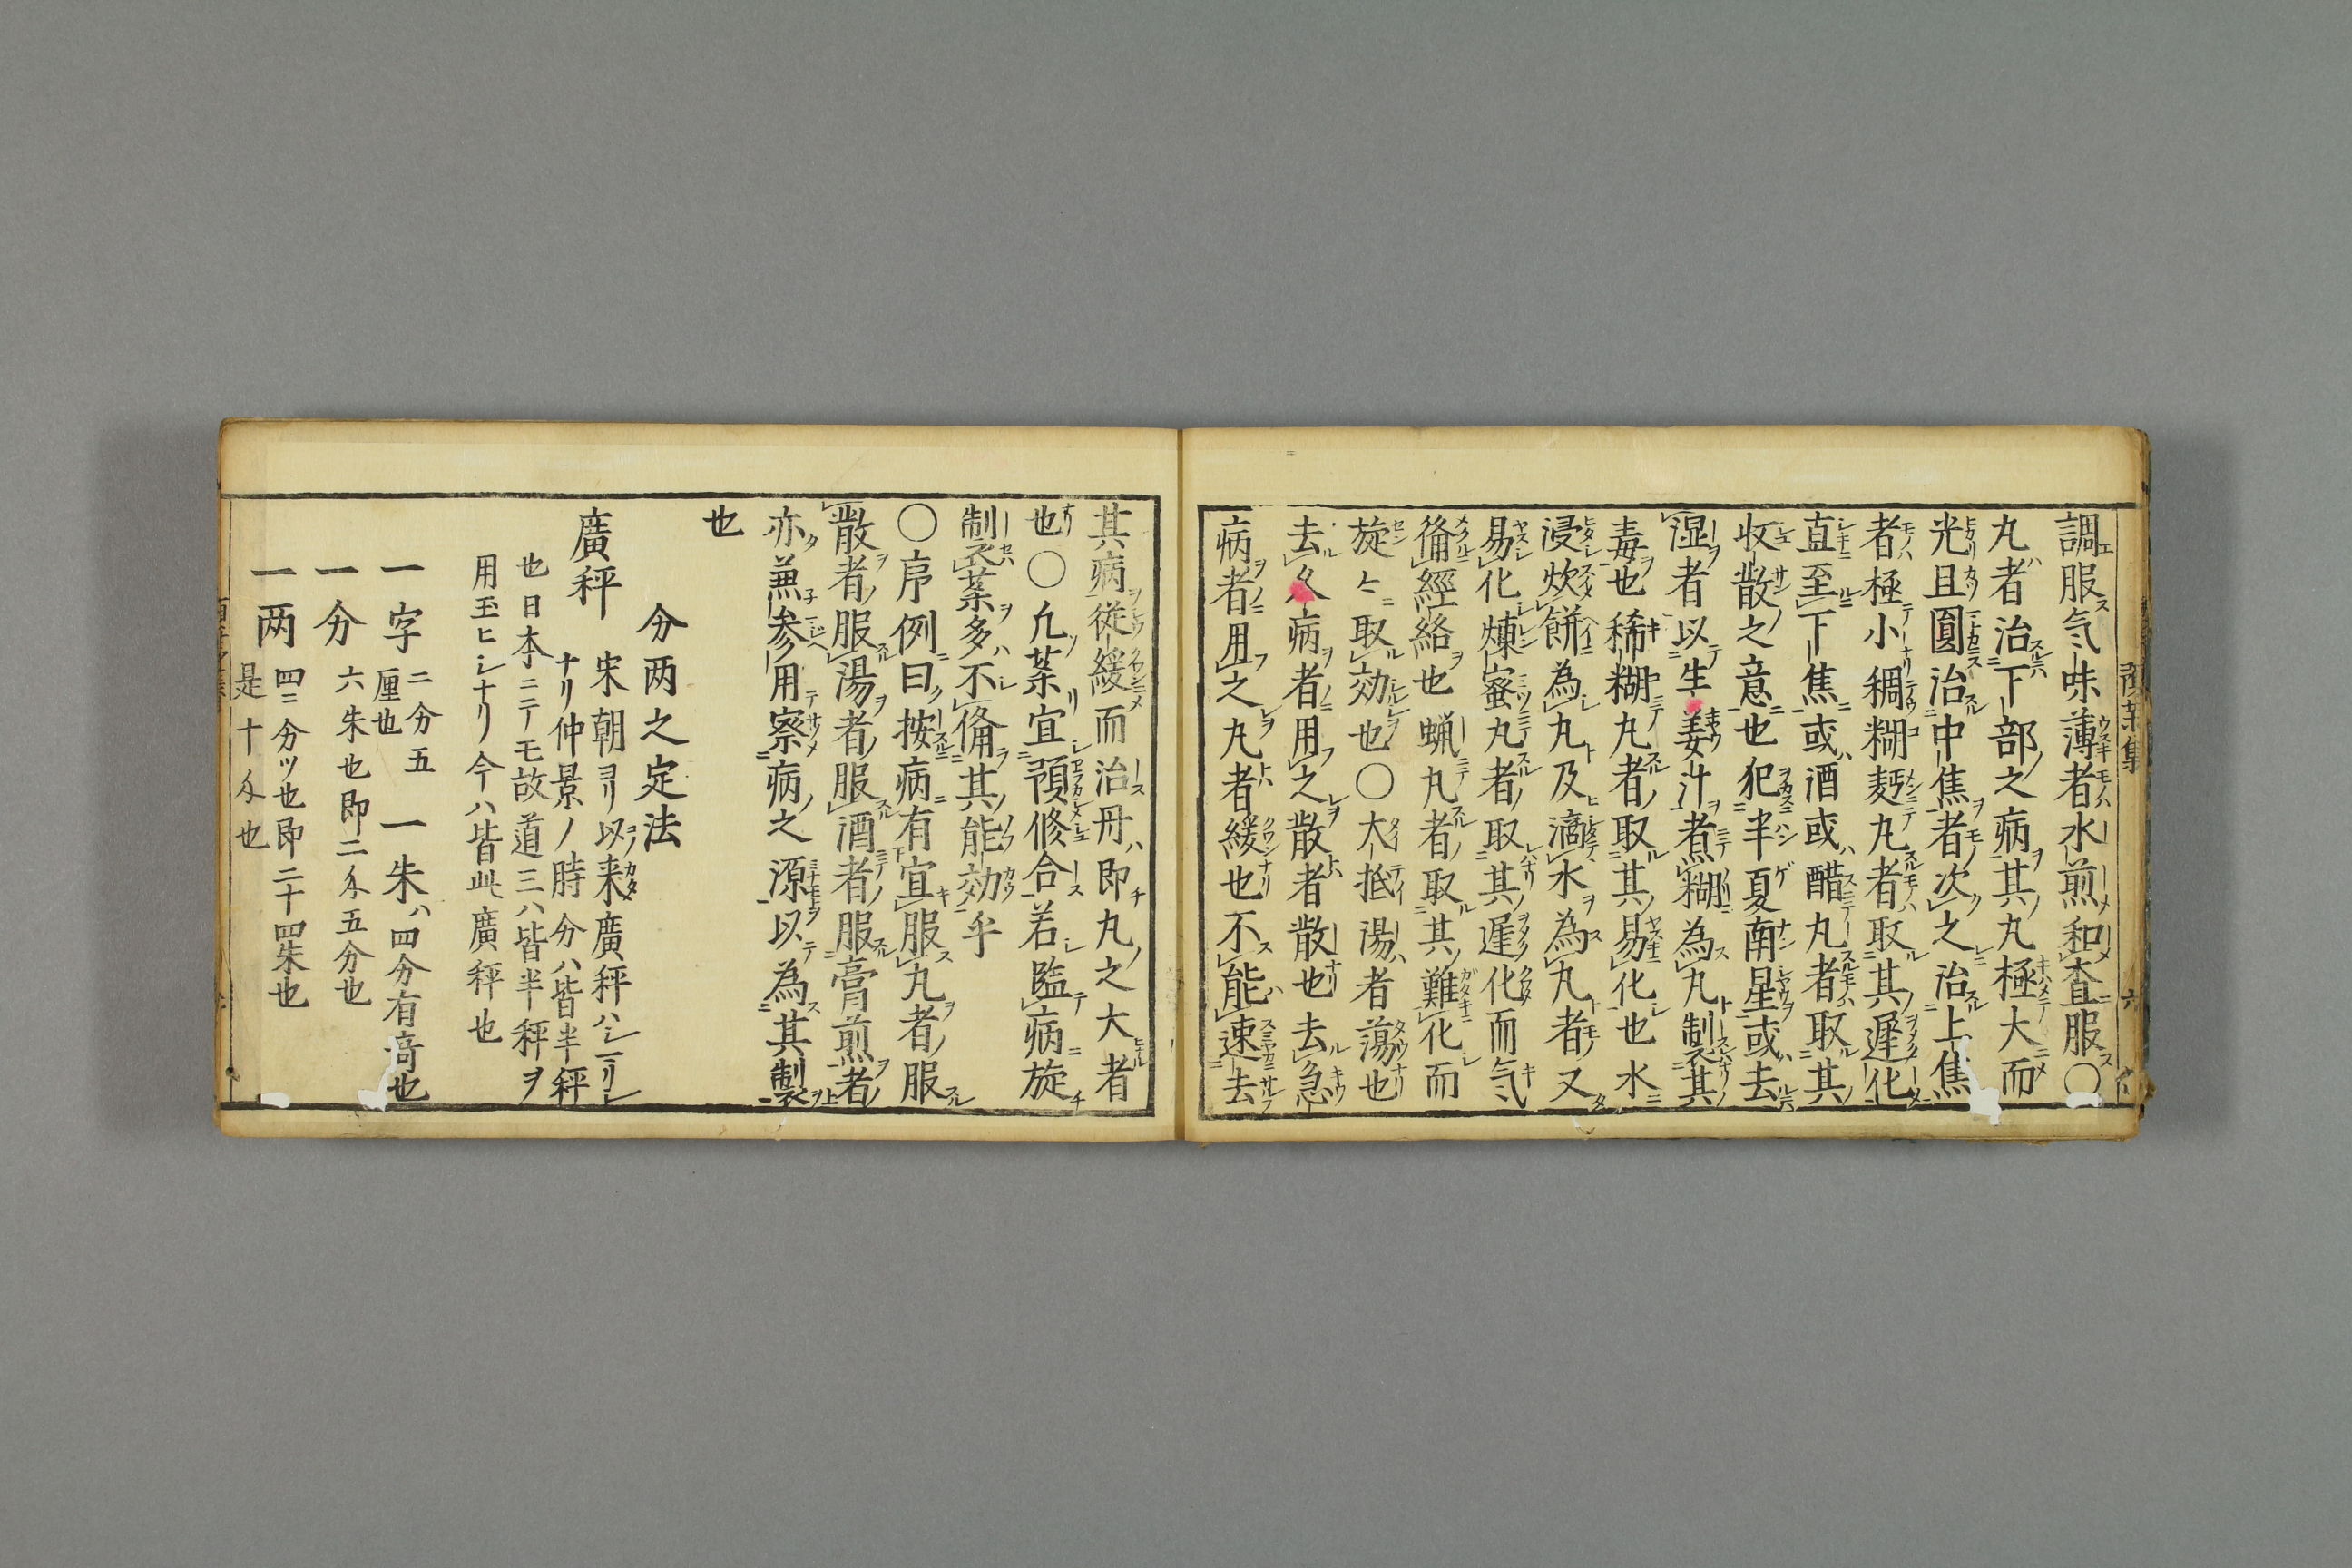 調服気味薄者水煎和査服〇
丸者治下部之病其丸極大而
光且圓治中焦者次之治上焦
者極小稠糊麪丸者取其遅化
直至下焦或酒或醋丸者取其
収散之意也犯半夏南星或去
湿者以生姜汁煮糊為丸制其
毒也稀糊丸者取其易化也水
浸炊餅為丸及滴水為丸者又
易化煉蜜丸者取其遅化而気
循經絡也蝋丸者取其難化而
旋々取効也〇大抵湯者蕩也
去久病者用之散者散也去急
病者用之丸者緩也不能速去
其病従緩而治丹即丸之大者
也〇凢薬宜預修合若臨病旋
製薬多不俻其能効乎
〇序例曰按病有宜服丸者服
散者服湯者服酒者服膏煎者
亦兼参用察病之源以為其製
也
分两之定法
廣秤 宋朝ヨリ以来廣秤ハ
ナリ仲景ノ時分ハ皆半秤
也日本ニテモ故道三ハ皆半秤ヲ
用玉ヒシナリ今ハ皆此廣秤也
一字 二分五
厘也 一朱ハ四分有奇也
一分 六朱也即二匁五分也
一两 四ニ分ツ也即二十四朱也
是十匁也